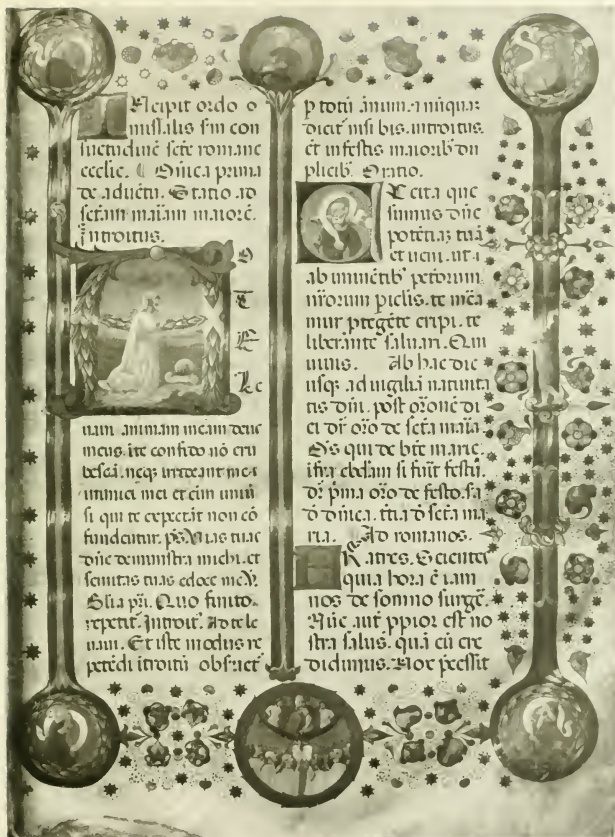 Incipit ordo o
missalis sm con
suetudinē scte romane
ecclie. Dnica prima
de aduētu. Statio ad
sctam mariam maiorē.
introitus.
D
T
E
Le
uaui animam meam deus
meus ite confido nō eru
bescā. neq irrideant me
inimici mei et eim uniū
si qui te expectāt non cō
fundentur. ps Vias tuas
dne demonstra michi. et
semitas tuas edoce me. V.
Glia pri. Quo finito.
repetit. Introit. Ad te le
uaui. Et iste modus re
petēdi itroitū obseruet
p totū annum. 
dicit nisi bis. introitus.
et in festis maiorib du
plicib. Oratio.
Excita que
sumus dne
potētiaz tuā
et ueni. ut
ab iminētib pctorum
nrorum piclis. te mea
mur ptegēte eripi. te
liberante saluari. Qui
uiuis. Ab hac die
usq ad uigiliā natiuita
tis dni. post orōnē di
ei dr oro de scta maia.
Ds qui de bte marie.
ifra ebdam si fuit festū.
dr pma oro de festo. sa
dnica. ttia scta ma
ria. Ad romanos.
Fratres. Scientes
quia hora ē iam
nos de somno surgē.
Nūc aut ppior est no
stra salus. quā cū cre
didimus. Nox pcessit